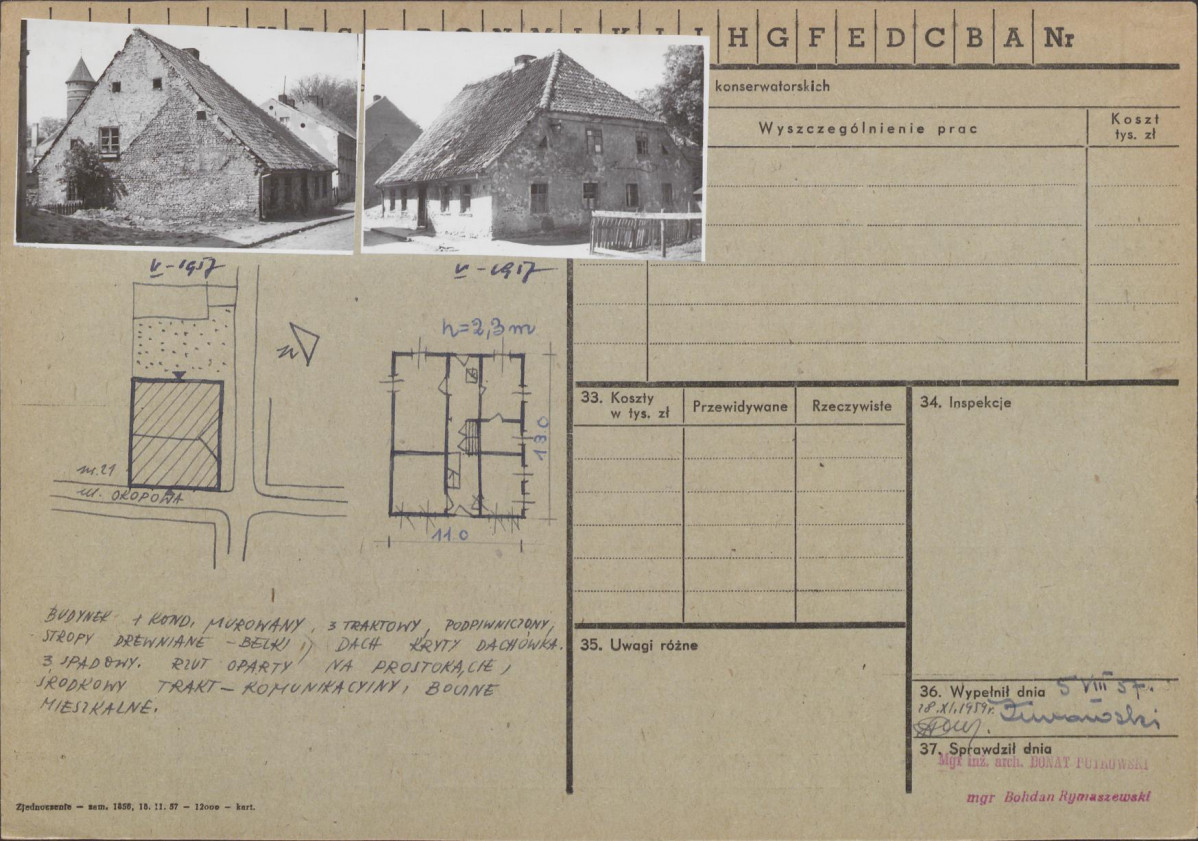 H G F E D C B A Nr
konserwatorskich
Wyszczególnienie prac
Koszt
tys. zł
V-1957
V-1957
h=2,3m
N
130
110
m. 21
ul. OKOPOWA
BUDYNEK 1 KOND. MUROWANY, 3 TRAKTOWY, PODPIWNICZONY,
STROPY DREWNIANE – BELKI, DACH KRYTY DACHÓWKĄ.
3 SPADOWY. RZUT OPARTY NA PROSTOKĄCIE,
ŚRODKOWY TRAKT – KOMUNIKACYJNY, BOCZNE
MIESZKALNE.
33. Koszty
w tys. zł
Przewidywane
Rzeczywiste
34. Inspekcje
35. Uwagi różne
36. Wypełnił dnia 5 VIII 57.
28.XI.1959r.
37. Sprawdził dnia
Mgr inż. arch. DONAT PUTKOWSKI
mgr Bohdan Rymaszewski
Zjednoczenie – zam. 1856, 18. 11. 57 – 12000 – kart.